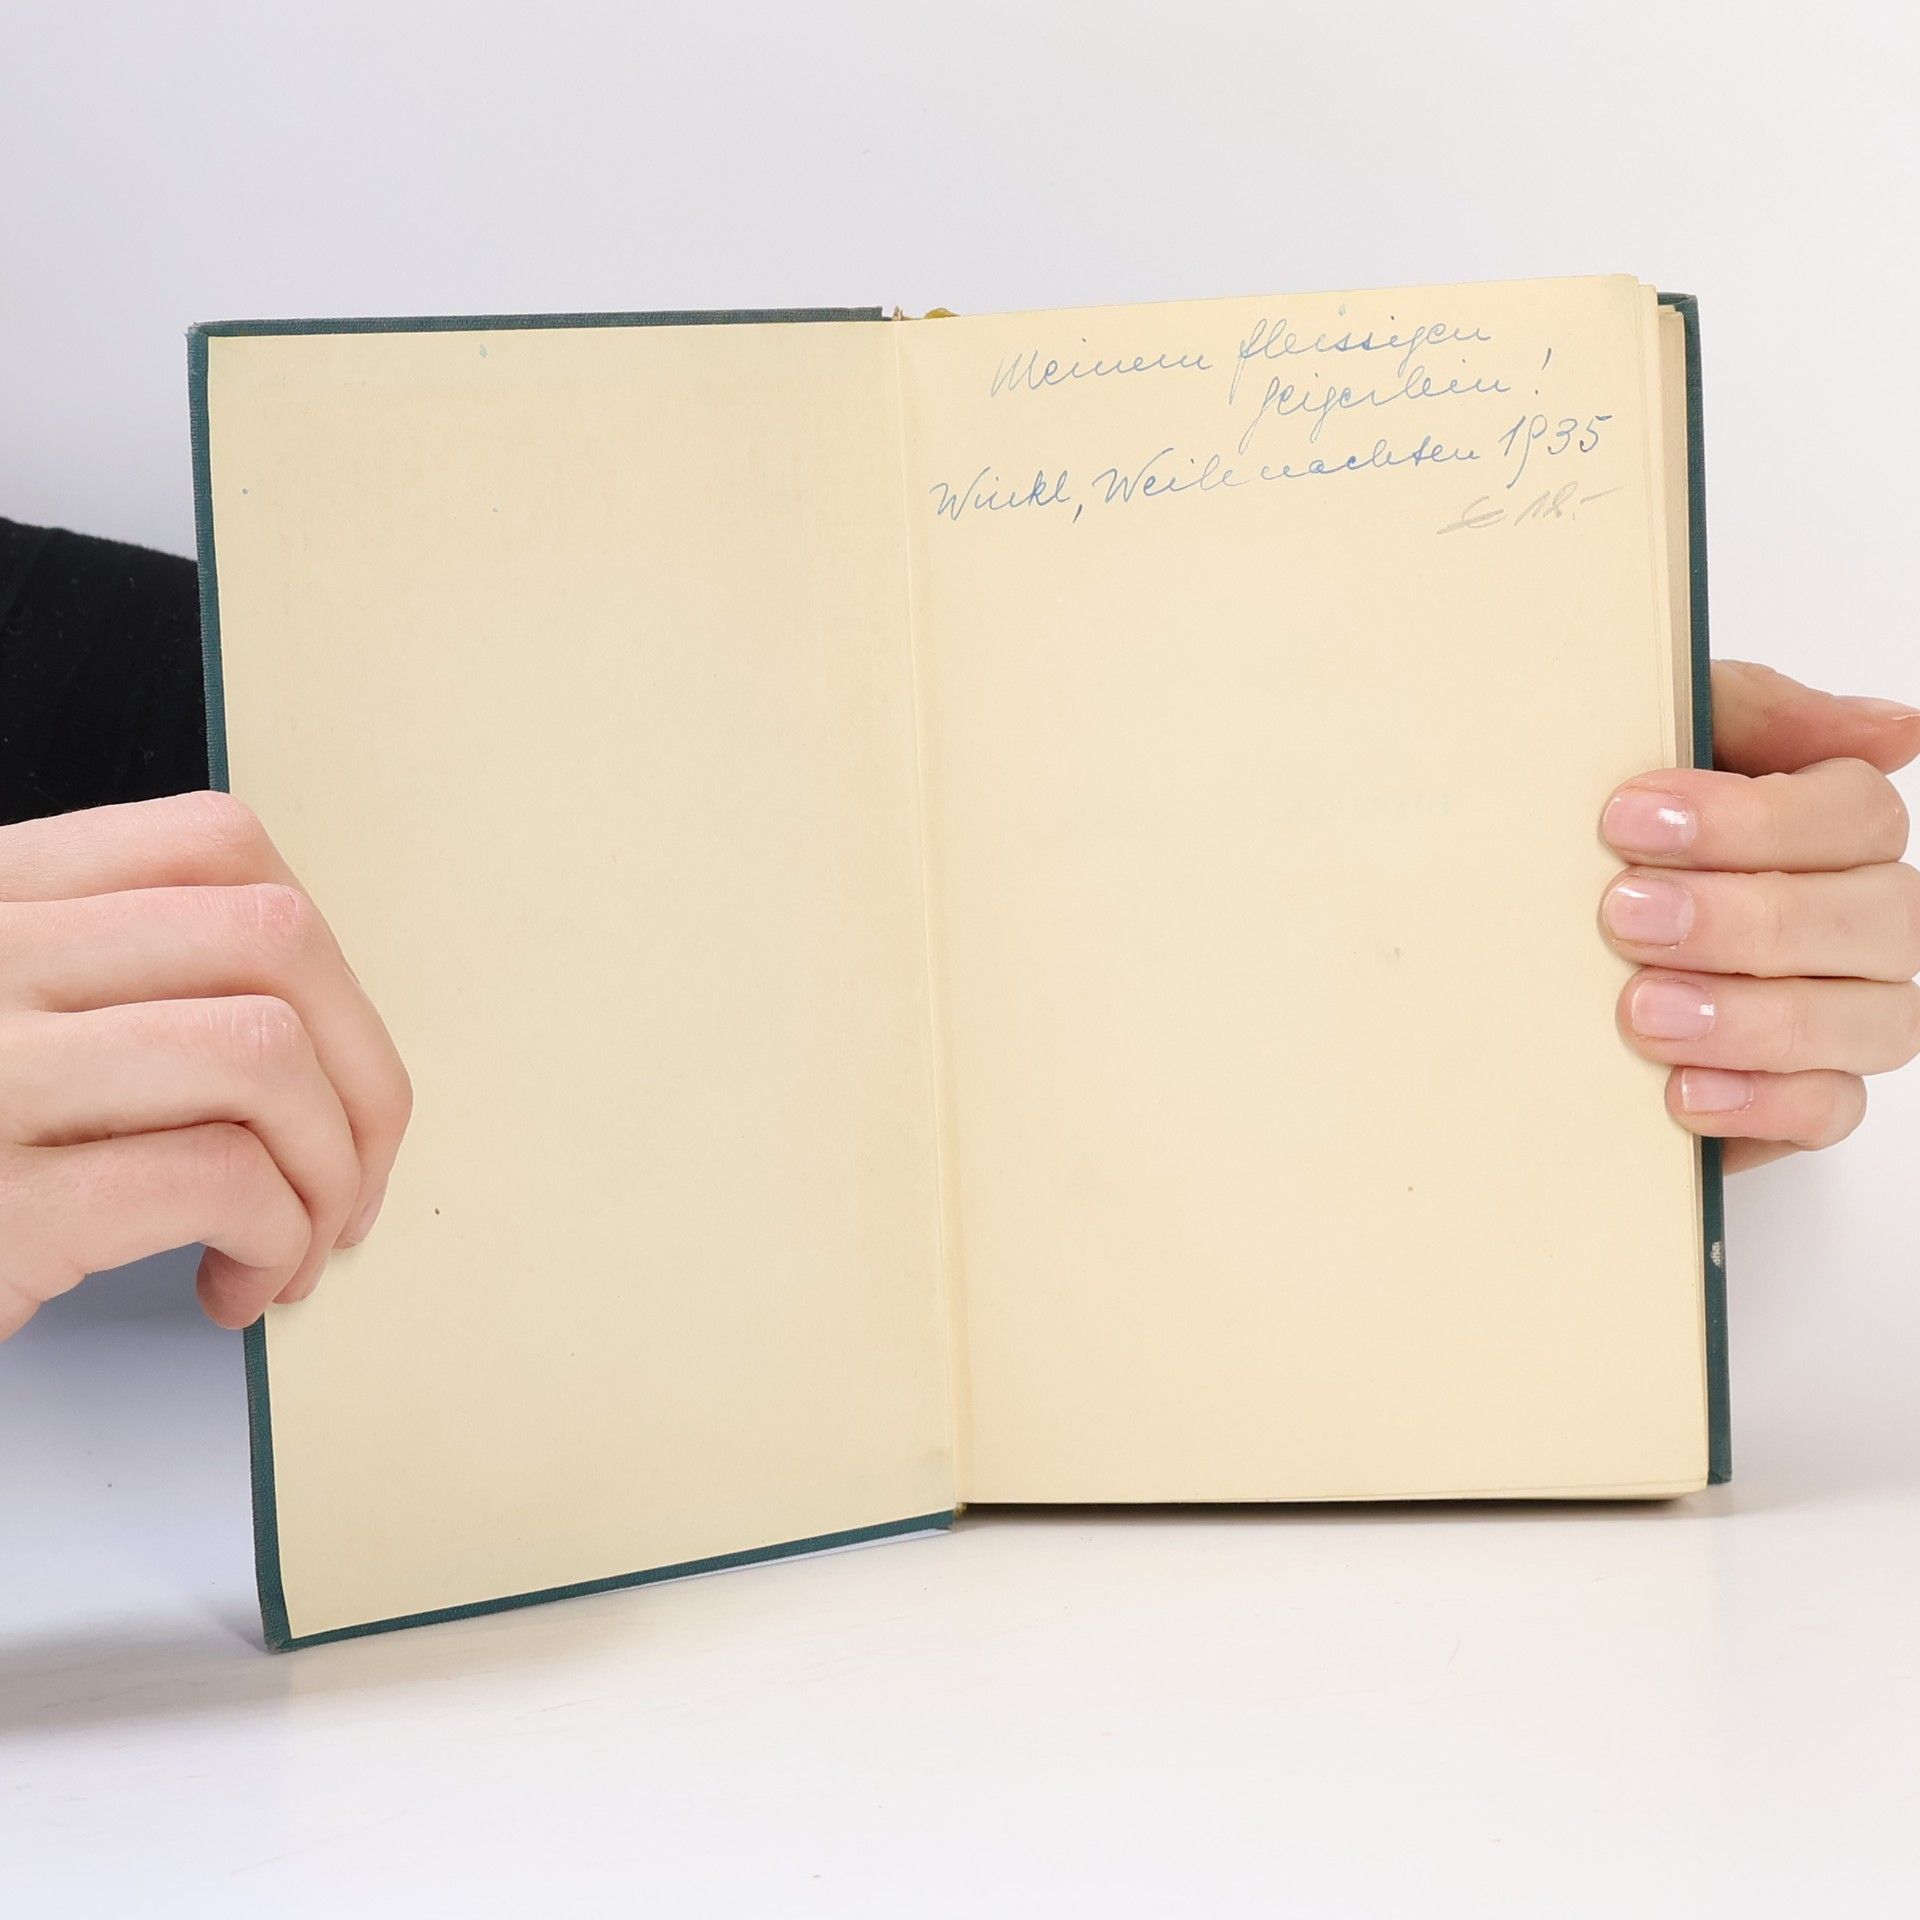 Meinem fleissigen
Geigerlein!
Winkl, Weihnachten 1935
€ 12.-